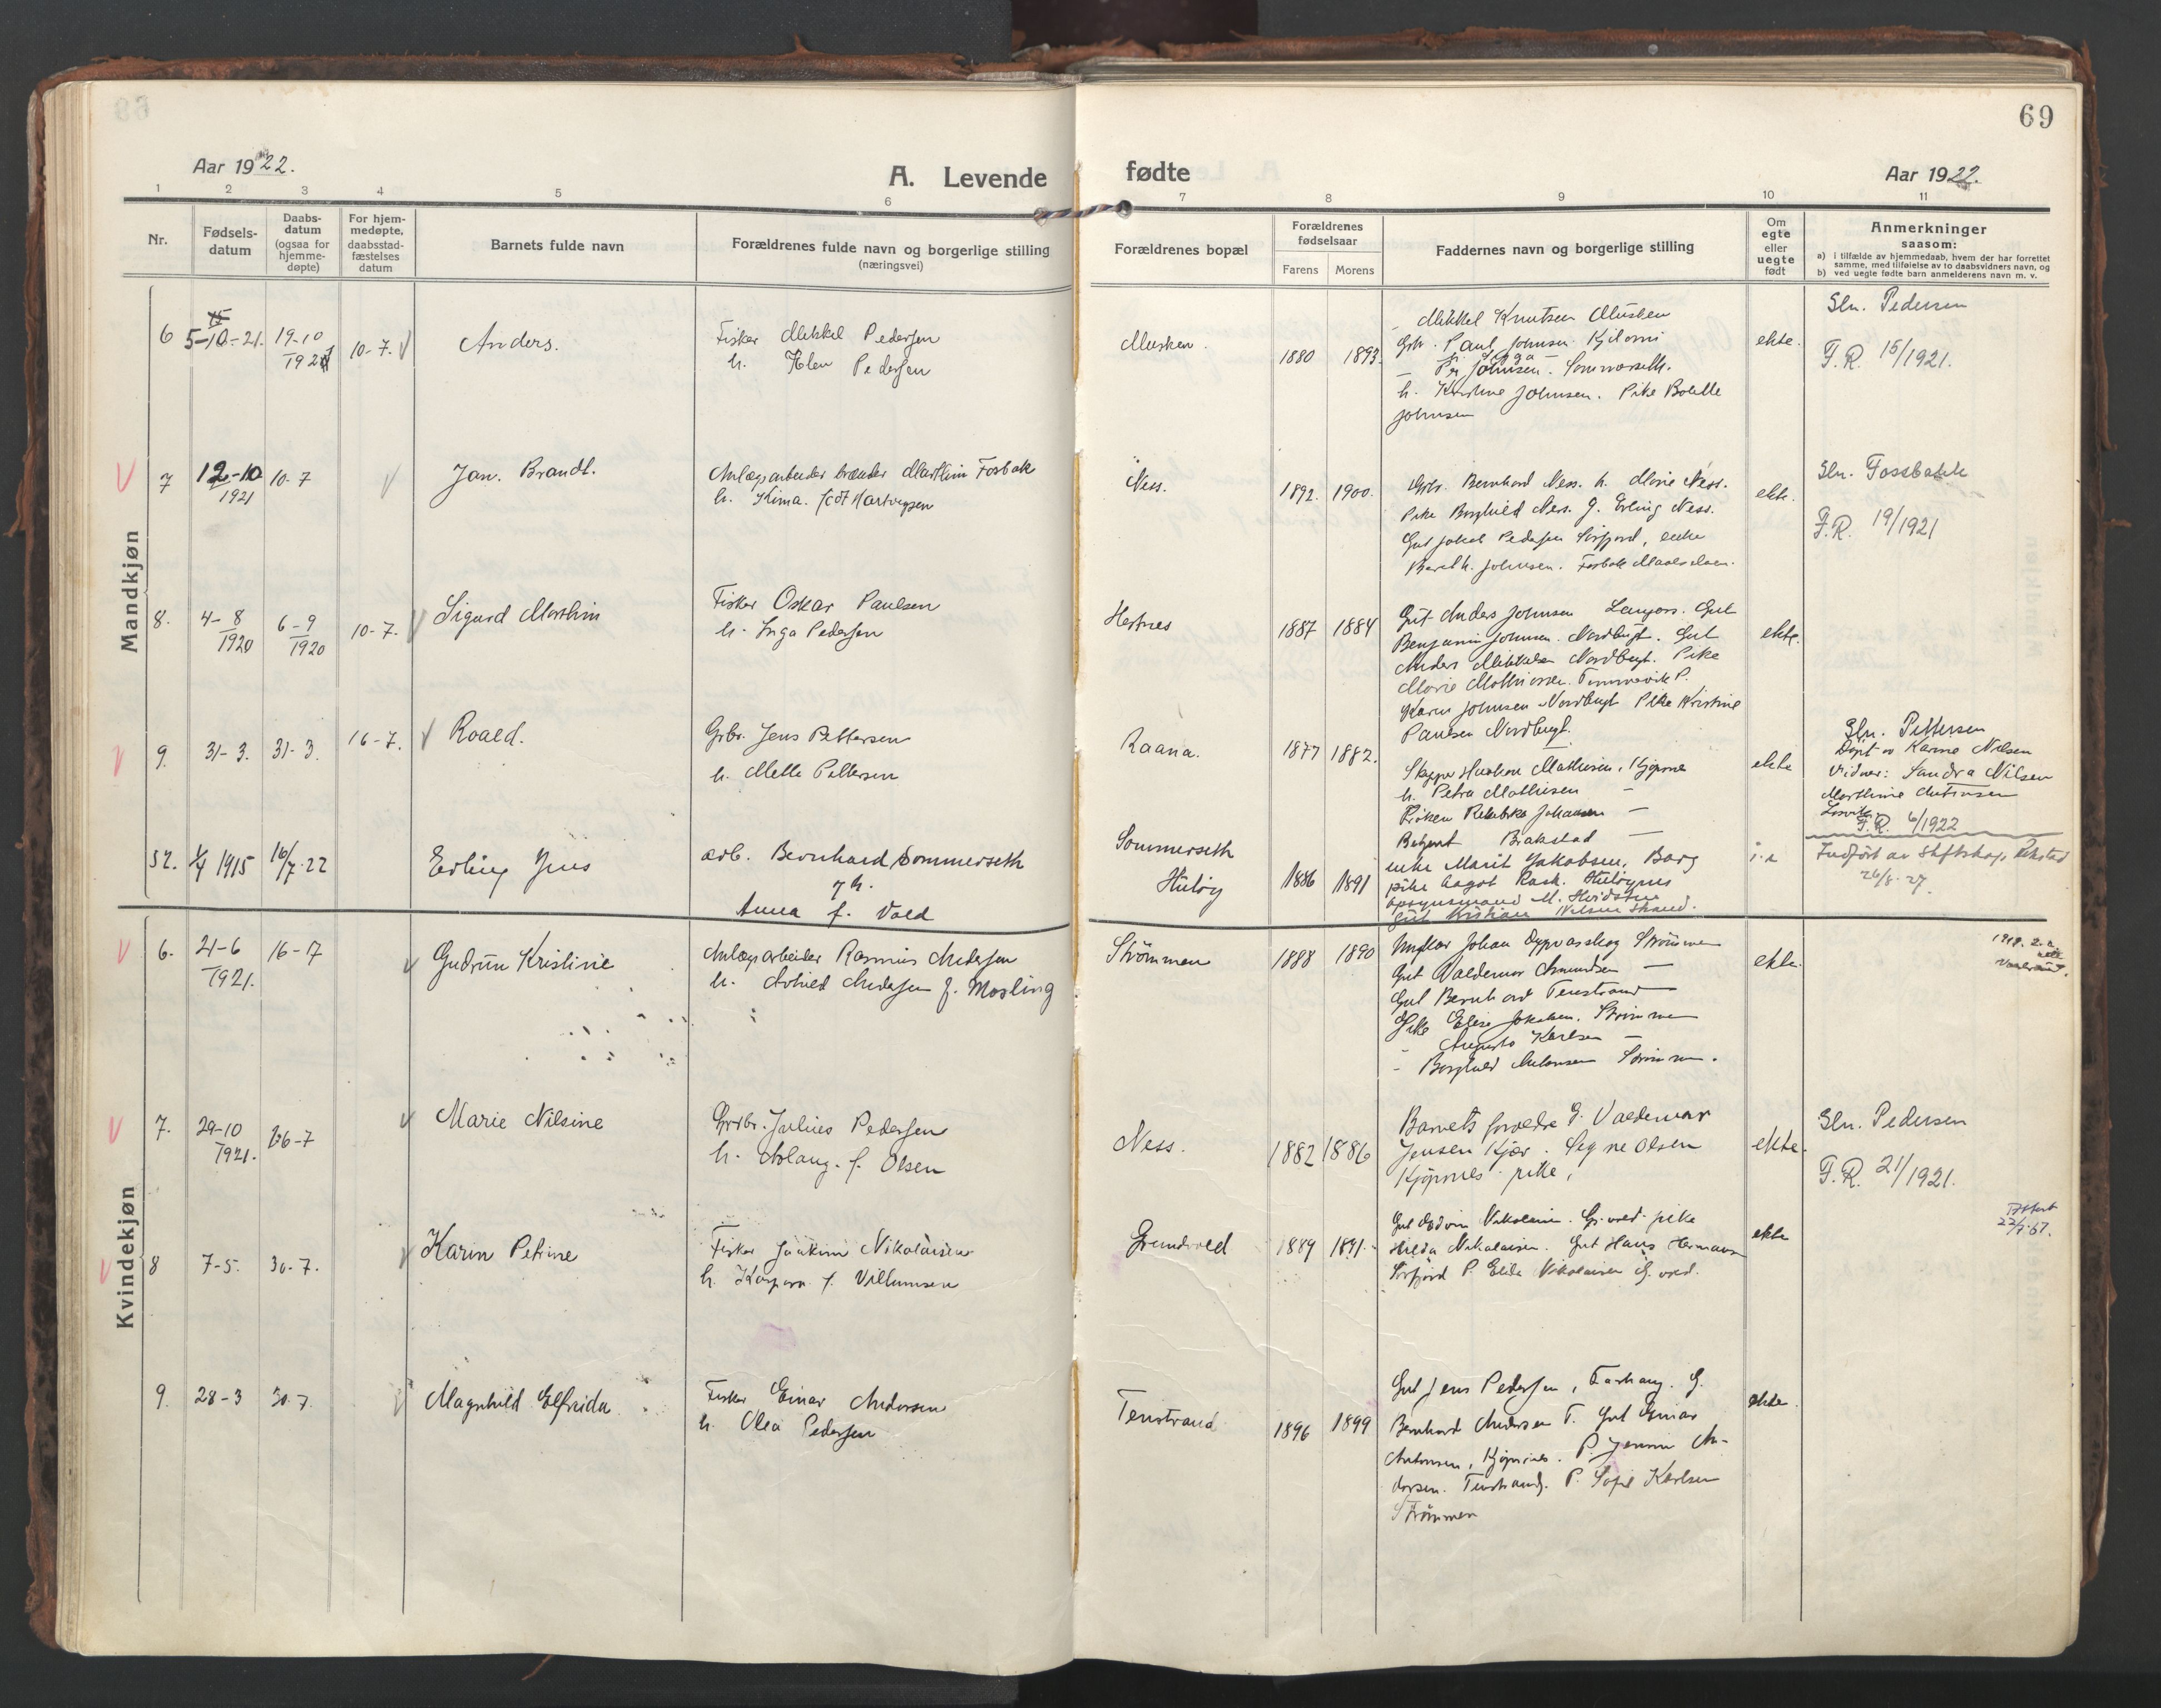 69
Aar 1922.
A. Levende fødte
Aar 1922.
1 2 3 4 5 6 7 8 9 10 11
Nr.
Fødsels-
datum
Daabs-
datum
(ogsaa for
hjemme-
døpte)
For hjem-
medøpte,
daabsstad-
fæstelses
datum
Barnets fulde navn
Forældrenes fulde navn og borgerlige stilling
(næringsvei)
Forældrenes bopæl
Forældrenes
fødselsaar
Farens Morens
Faddernes navn og borgerlige stilling
Om
egte
eller
uegte
født
Anmerkninger
saasom:
a) i tilfælde av hjemmedaab, hvem der har forrettet
samme, med tilføielse av to daabsvidners navn, og
b) ved uegte fødte barn anmelderens navn m. v.
Mandkjøn
6 5-10-21. 19-10 1921 10-7. Anders.
Fisker Mikkel Pedersen
h. Elen Pedersen
Musken. 1880 1893.
Mikkel Knutsen Musken
Grbr. Paul Johnsen
Per Johnsen. Sommerseth.
h. Kristine Johnsen. Pike Bolette
Johnsen
ekte.
Sln. Pedersen
F.R. 15/1921.
7 12-10 1921 10-7 Jan. Brandt.
Anlægsarbeider Marthin Fosbak
h. Kima. født Hartvigsen
Ness. 1892. 1900.
Grbr. Bernhard Ness. h. Marie Ness.
Pike Borghild Ness. G. Erling Ness.
Gut Jakob Pedersen Sørfjord, enke
Beret h. Johnsen. Fosbak
ekte.
Sln. Fossbakk
F.R. 19/1921
8. 4-8 1920 6-9 1920 10-7. Sigurd Marthin
Fisker Oskar Paulsen
h. Inga Pedersen
Hestnes 1887 1884
Gut Anders Johnsen Gut
Benjamin Johnsen. Nordbugt. Gut
Anders Mikkelsen Nordbugt. Pike
Marie Mathiesen. P.
Karen Johnsen Nordbugt Pike Kristine
Paulsen Nordbugt.
ekte.
9. 31-3. 31-3. 16-7. Roald.
Grbr. Jens Pettersen
h. Mette Pettersen
Raana. 1877 1882.
Skipper Haakon Mathisen, Kjøpsnes
h. Petra Mathisen —
Frøken Rebekka Johansen —
Brakstad —
ekte
Sln. Pettersen
Døpt av Karine Nilsen
Vidner: Sandra Nilsen
Marthine Antonsen
F.R. 6/1922
32. 1/4 1915 16/7-22 Erling Jens
arb. Bernhard Sommerseth
og h.
Anna f. Vold
Sommerseth
Huløy 1886 1891
enke Marit Jakobsen, Barø
pike Aagot Rask. Huløynes
opsynsmand M.
gut Kristian Nilsen Strand.
Indført av Rikstad
26/8-27.
Kvindekjøn
6. 21-6 1921. 16-17 Gudrun Kristine
Anlægsarbeider Rasmus Andersen
h. Andersen f. Mosling
Strømmen 1888 1890
Ungkar Johan Dypvasskog Strømmen
Gut Valdemar Amundsen —
Gut Bernhard Tenstrand —
Pike Elise Jakobsen. Strømmen
- Augusta Karlsen —
- Borghild Antonsen Strømmen.
ekte.
7. 29-10 1921. 16-7 Marie Nilsine
Grbr. Julius Pedersen
h. Aslaug. f. Olsen
Ness. 1882 1886
Barnets forældre G. Valdemar
Jensen Kjær. Signe Olsen
Kjøpsnes pike,
ekte.
Sln. Pedersen
F.R. 21/1921.
8 7-5. 30-7. Karin Petrine
Fisker Joakim Nikolaisen
h. Kaspara f. Villumsen
Grundvold 1889 1891.
Gut Edvin Nikolaisen. Gr.vold. pike
Hilda Nikolaisen. Gut Hans Hermansen
Sørfjord P. Elida Nikolaisen G. vold.
ekte
9. 28-3 30-7. Magnhild Elfrida
Fisker Einar Andersen
h. Olea Pedersen
Tenstrand 1896 1899
Gut Jens Pedersen, G.
Bernhard Andersen T. Gut Einar
Antonsen, Kjøpsnes. P. Jenni An-
dersen. Tenstrand. P. Sofie Karlsen
Strømmen
ekte.